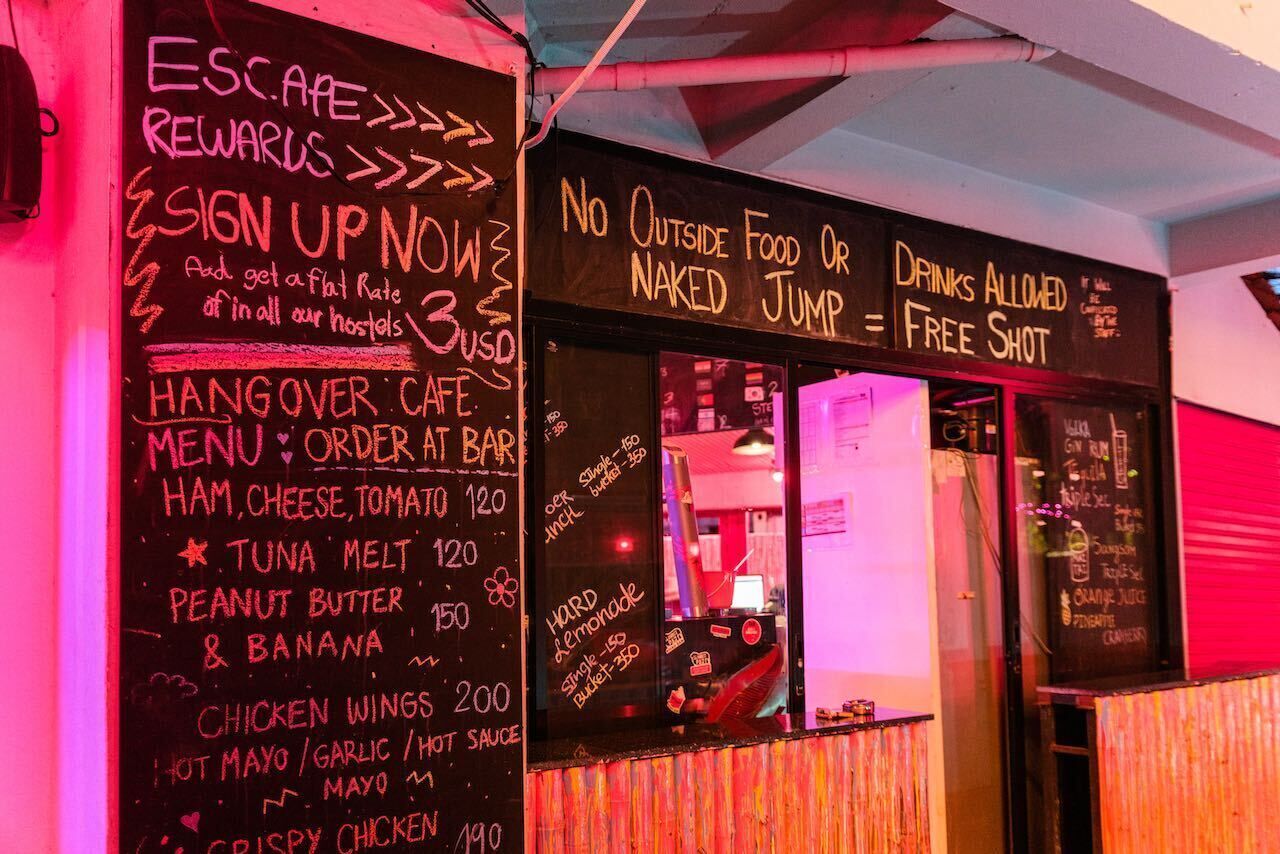 ESCAPE >>>>>
REWARDS >>>>>
SIGN UP NOW
And get a flat Rate
of in all our hostels 3 USD
HANGOVER CAFE
MENU ORDER AT BAR
HAM, CHEESE, TOMATO 120
TUNA MELT 120
PEANUT BUTTER
& BANANA 150
CHICKEN WINGS 200
HOT MAYO / GARLIC / HOT SAUCE
MAYO
CRISPY CHICKEN 190
NO OUTSIDE FOOD OR DRINKS ALLOWED
NAKED JUMP = FREE SHOT
IT WILL
BE
CONFISCATED
BY THE
STAFF
-150
-350
SINGLE - 150
bucket - 350
HARD
Lemonade
Single - 150
Bucket - 350
Vodka
GIN RUM
TEQUILA
TripLe Sec
Sangsom
TRIPLE Sec
ORANGE JUICE
PINEAPPLE
CRANBERRY